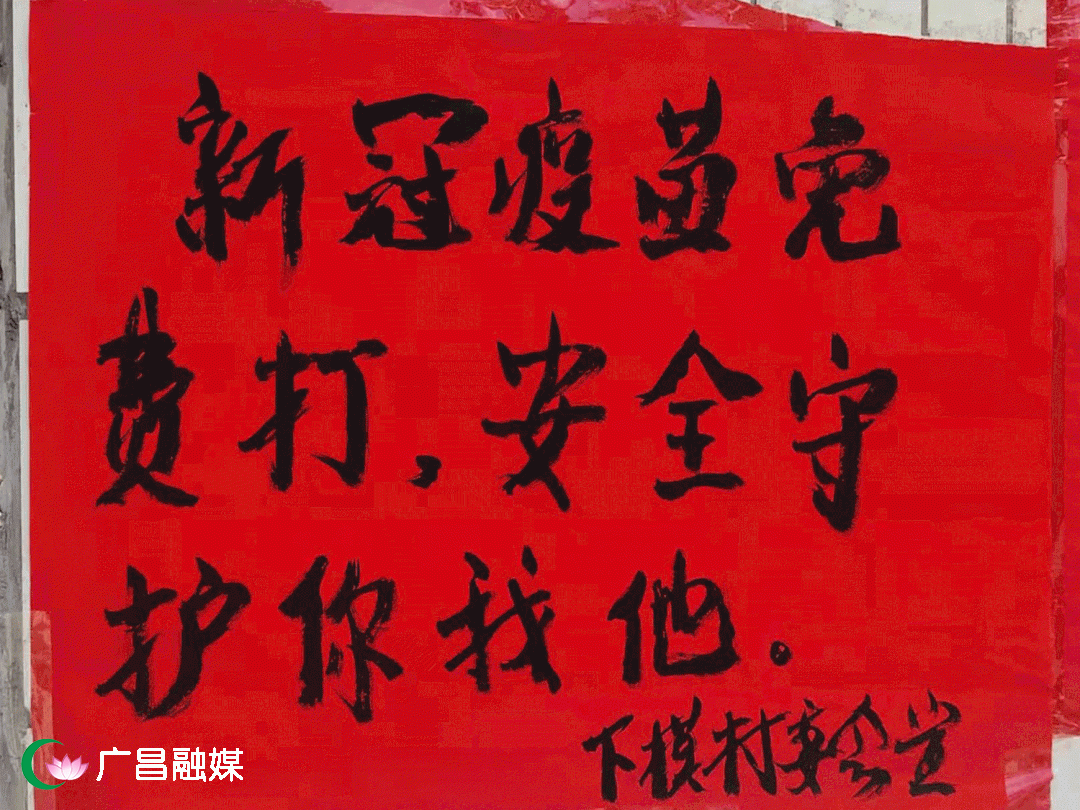 新冠疫苗免
费打,安全守
护你我他。
下模村委会宣
广昌融媒